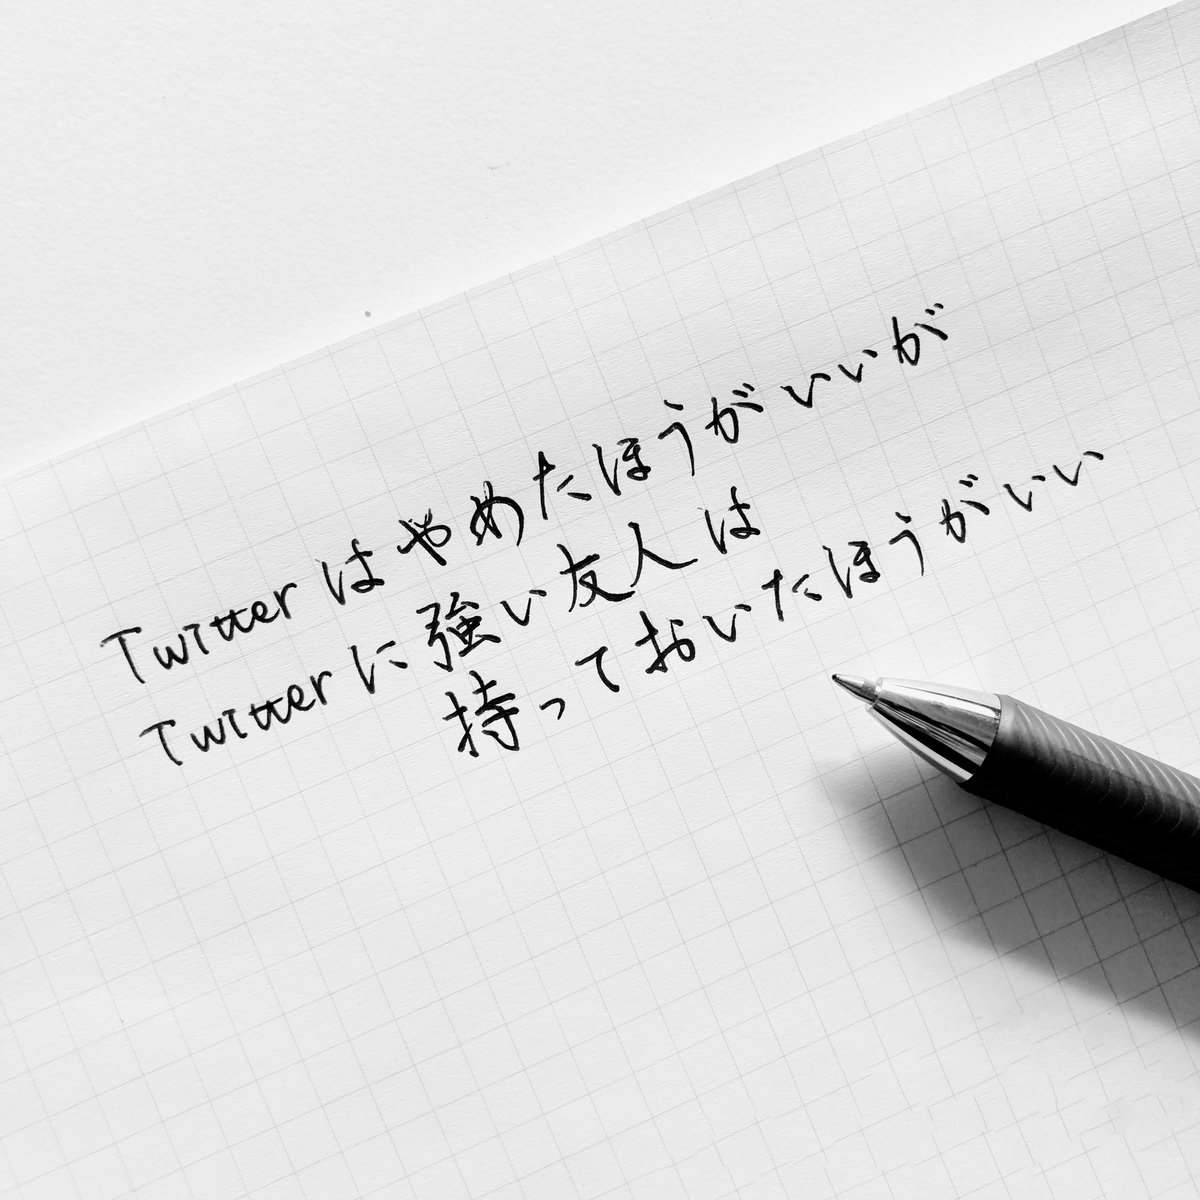 Twitterはやめたほうがいいが
Twitterに強い友人は
持っておいたほうがいい